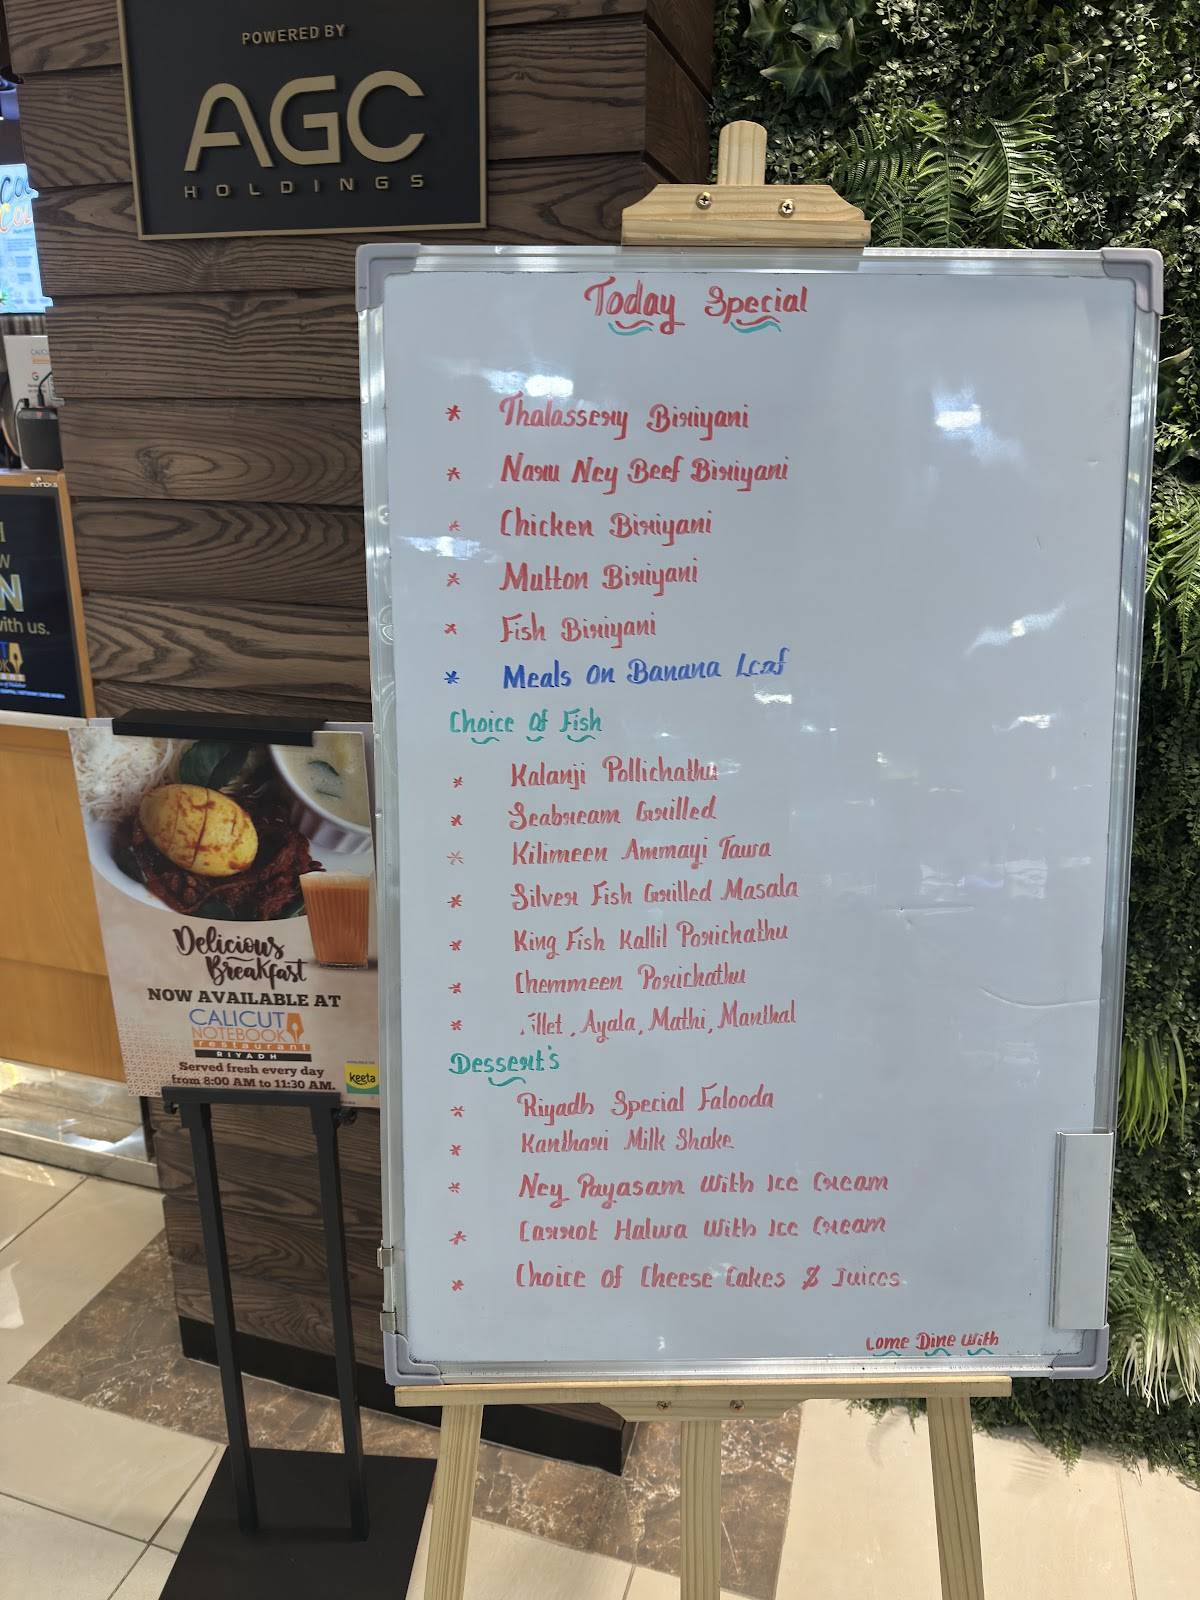 POWERED BY
AGC
HOLDINGS
Today Special
* Thalassery Biriyani
* Naru Ney Beef Biriyani
* Chicken Biriyani
* Mutton Biriyani
* Fish Biriyani
* Meals On Banana Leaf
Choice Of Fish
* Kalanji Pollichathu
* Seabream Grilled
* Kilimeen Ammayi Tawa
* Silver Fish Grilled Masala
* King Fish Kallil Porichathu
* Chemmeen Porichathu
* Fillet, Ayala, Mathi, Manthal
Dessert's
* Riyadh Special Falooda
* Kanthari Milk Shake
* Ney Payasam With Ice Cream
* Carrot Halwa With Ice Cream
* Choice Of Cheese Cakes & Juices
Come Dine With
with us.
Delicious
Breakfast
NOW AVAILABLE AT
CALICUT
NOTEBOOK
restaurant
RIYADH
Served fresh every day
from 8:00 AM to 11:30 AM.
keeta